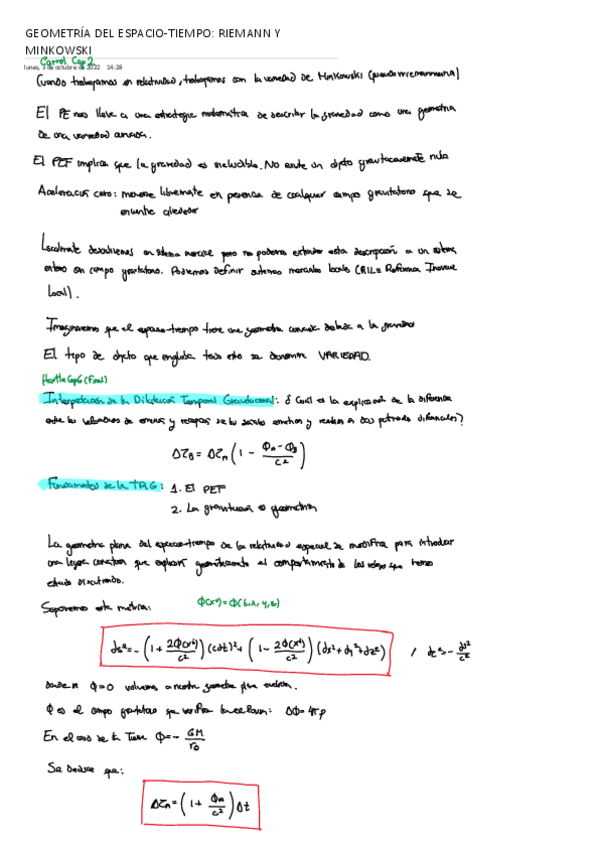 GEOMETRÍA DEL ESPACIO-TIEMPO: RIEMANN Y
MINKOWSKI
lunes, 3 de octubre de 2022 14:28
Carrol Cap 2
Cuando trabajamos en relatividad, trabajamos con la variedad de Minkowski (pseudoriemanniana)
El PE nos lleva a una estrategia matemática de describir la gravedad como una geometría
de una variedad curvada.
El PEF implica que la gravedad es ineludible. No existe un objeto gravitacionalmente nulo
Aceleración cero: moverse libremente en presencia de cualquier campo gravitatorio que se
encuentre alrededor
Localmente en sistema inercial pero no podemos extender esta descripción a un sistema
en campo gravitatorio. Podremos definir sistemas inerciales locales (RIL= Referencia Inercial
Local).
Imaginaremos que el espacio-tiempo tiene una geometría curvada debida a la gravedad
El tipo de objeto que engloba todo esto se denomina VARIEDAD.
Hartle Cap 6 (Final)
Interpretación de la Dilatación Temporal Gravitacional: ¿Cuál es la explicación de la diferencia
entre los de emisión y recepción de las señales emitidas y recibidas a dos potenciales diferentes?
Δτ_B = Δτ_A (1 - (Φ_A - Φ_B)/c²)
Fundamentos de la TRG: 1. El PEF
2. La gravitación es geometría
La geometría plana del espacio-tiempo de la relatividad especial se modifica para introducir
una ligera curvatura que explicará geométricamente el comportamiento de los relojes que hemos
estado discutiendo.
Suponemos esta métrica: Φ(x^α)=Φ(t,x,y,z)
ds²=-(1+2Φ(x^α)/c²)(cdt)²+(1-2Φ(x^α)/c²)(dx²+dy²+dz²) / dτ²=-ds²/c²
donde si Φ=0 volvemos a nuestra geometría plana euclídea.
Φ es el campo gravitatorio que verifica la ec: ΔΦ=4πρ
En el caso de la Tierra Φ=-GM/r
Se deduce que:
Δτ_A=(1+Φ_A/c²)Δt